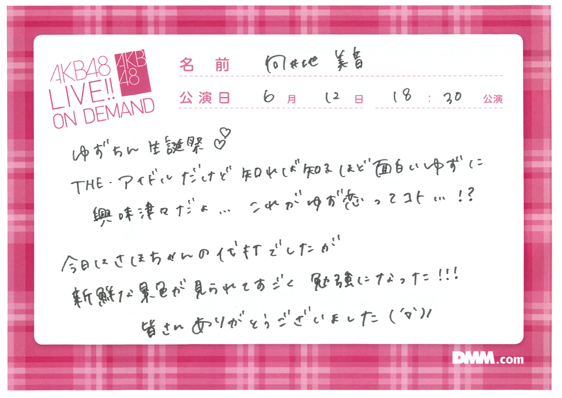 AKB48
LIVE!!
ON DEMAND
AKB
48
名前 向井地 美音
公演日 6月 12日 18:30 公演
ゆずちん 生誕祭♡♡
THE・アイドルだけど 知れば知るほど面白いゆずに
興味津々だょ... これがゆず恋ってコト...!?
今日はさほちゃんの代打でしたが
新鮮な景色が見られてすごく 勉強になった!!!
皆さんありがとうございました
DMM.com